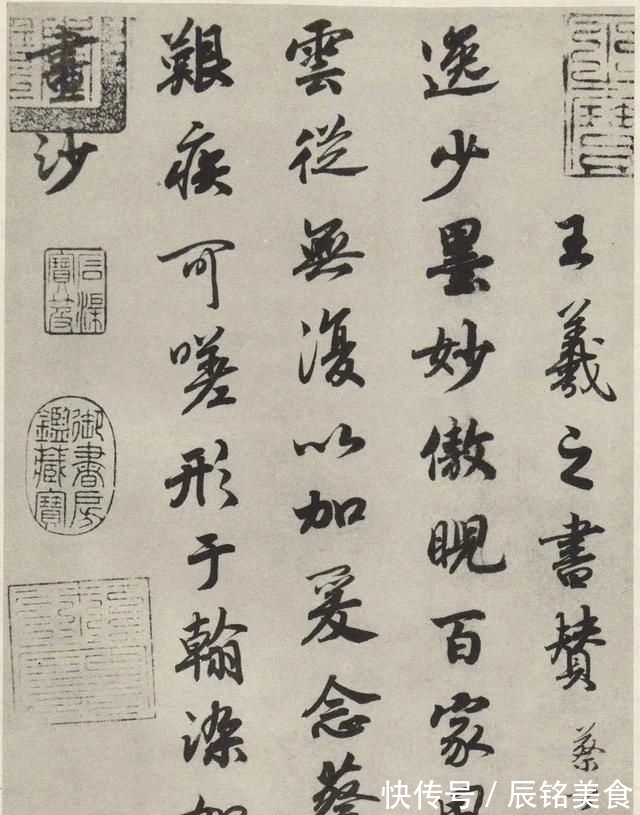 王羲之書贊 蔡
逸少墨妙傲睨百家
雲從無復以加爰念蔡
艱疾可嗟形于翰染如
畫沙
石渠寶笈
御書房鑑藏寶
快传号/辰铭美食